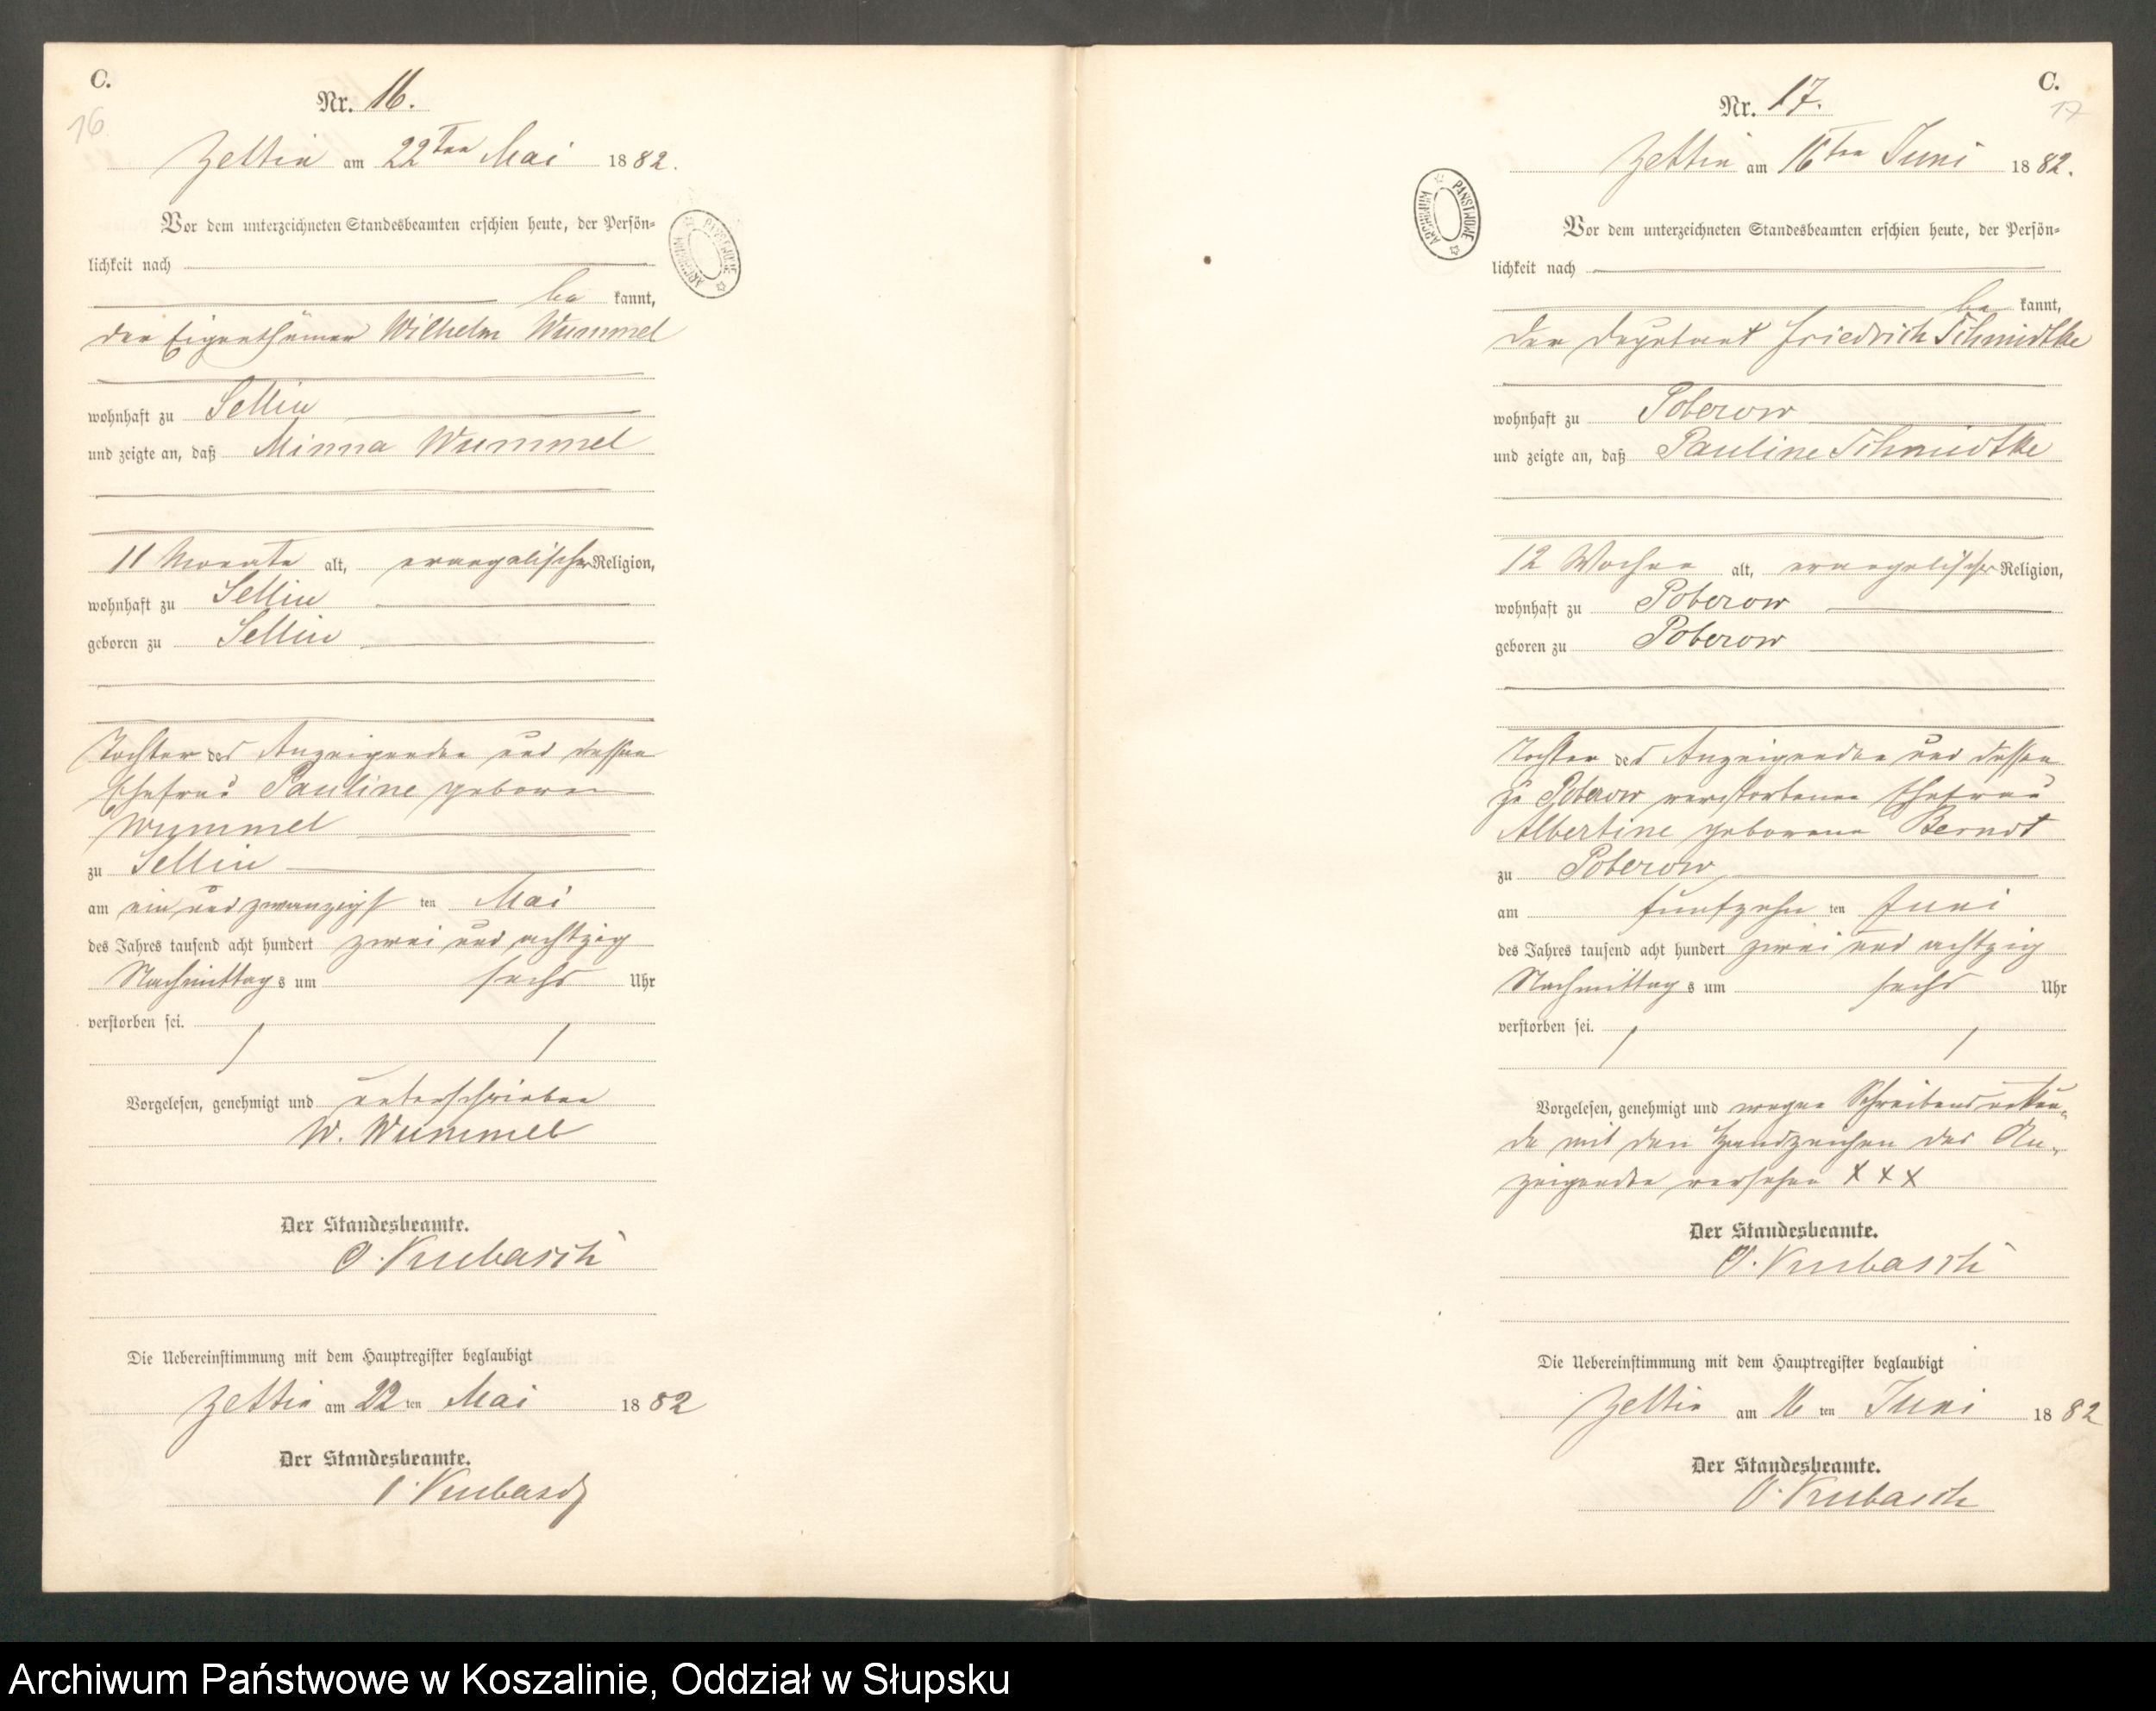 C.
16
Nr. 16.
Zettin am 22ten Mai 1882.
Vor dem unterzeichneten Standesbeamten erschien heute, der Persön-
lichkeit nach
be kannt,
der Eigenthümer Wilhelm Wummel
wohnhaft zu Sellin
und zeigte an, daß Minna Wummel
11 Monate alt, evangelischer Religion,
wohnhaft zu Sellin
geboren zu Sellin
Tochter des Anzeigenden und dessen
Ehefrau Pauline geboren
Wummel
zu Sellin
am ein und zwanzigst ten Mai
des Jahres tausend acht hundert zwei und achtzig
Nachmittag s um sechs Uhr
verstorben sei.
Vorgelesen, genehmigt und unterschrieben
W. Wummel
Der Standesbeamte.
O. Krubasch
Die Uebereinstimmung mit dem Hauptregister beglaubigt
Zettin am 22 ten Mai 1882
Der Standesbeamte.
O. Krubasch
ARCHIWUM PAŃSTWOWE
C.
17
Nr. 17.
Zettin am 16ten Juni 1882.
Vor dem unterzeichneten Standesbeamten erschien heute, der Persön-
lichkeit nach
be kannt,
der Deputant Friedrich Schmidtke
wohnhaft zu Poberow
und zeigte an, daß Pauline Schmidtke
12 Wochen alt, evangelischer Religion,
wohnhaft zu Poberow
geboren zu Poberow
Tochter des Anzeigenden und dessen
zu Poberow verstorbenen Ehefrau
Albertine geborene Berndt
zu Poberow
am fünfzehn ten Juni
des Jahres tausend acht hundert zwei und achtzig
Nachmittag s um sechs Uhr
verstorben sei.
Vorgelesen, genehmigt und wegen Schreibensunkun-
de mit den Handzeichen des An-
zeigenden versehen X X X
Der Standesbeamte.
O. Krubasch
Die Uebereinstimmung mit dem Hauptregister beglaubigt
Zettin am 16 ten Juni 1882
Der Standesbeamte.
O. Krubasch
ARCHIWUM PAŃSTWOWE
Archiwum Państwowe w Koszalinie, Oddział w Słupsku